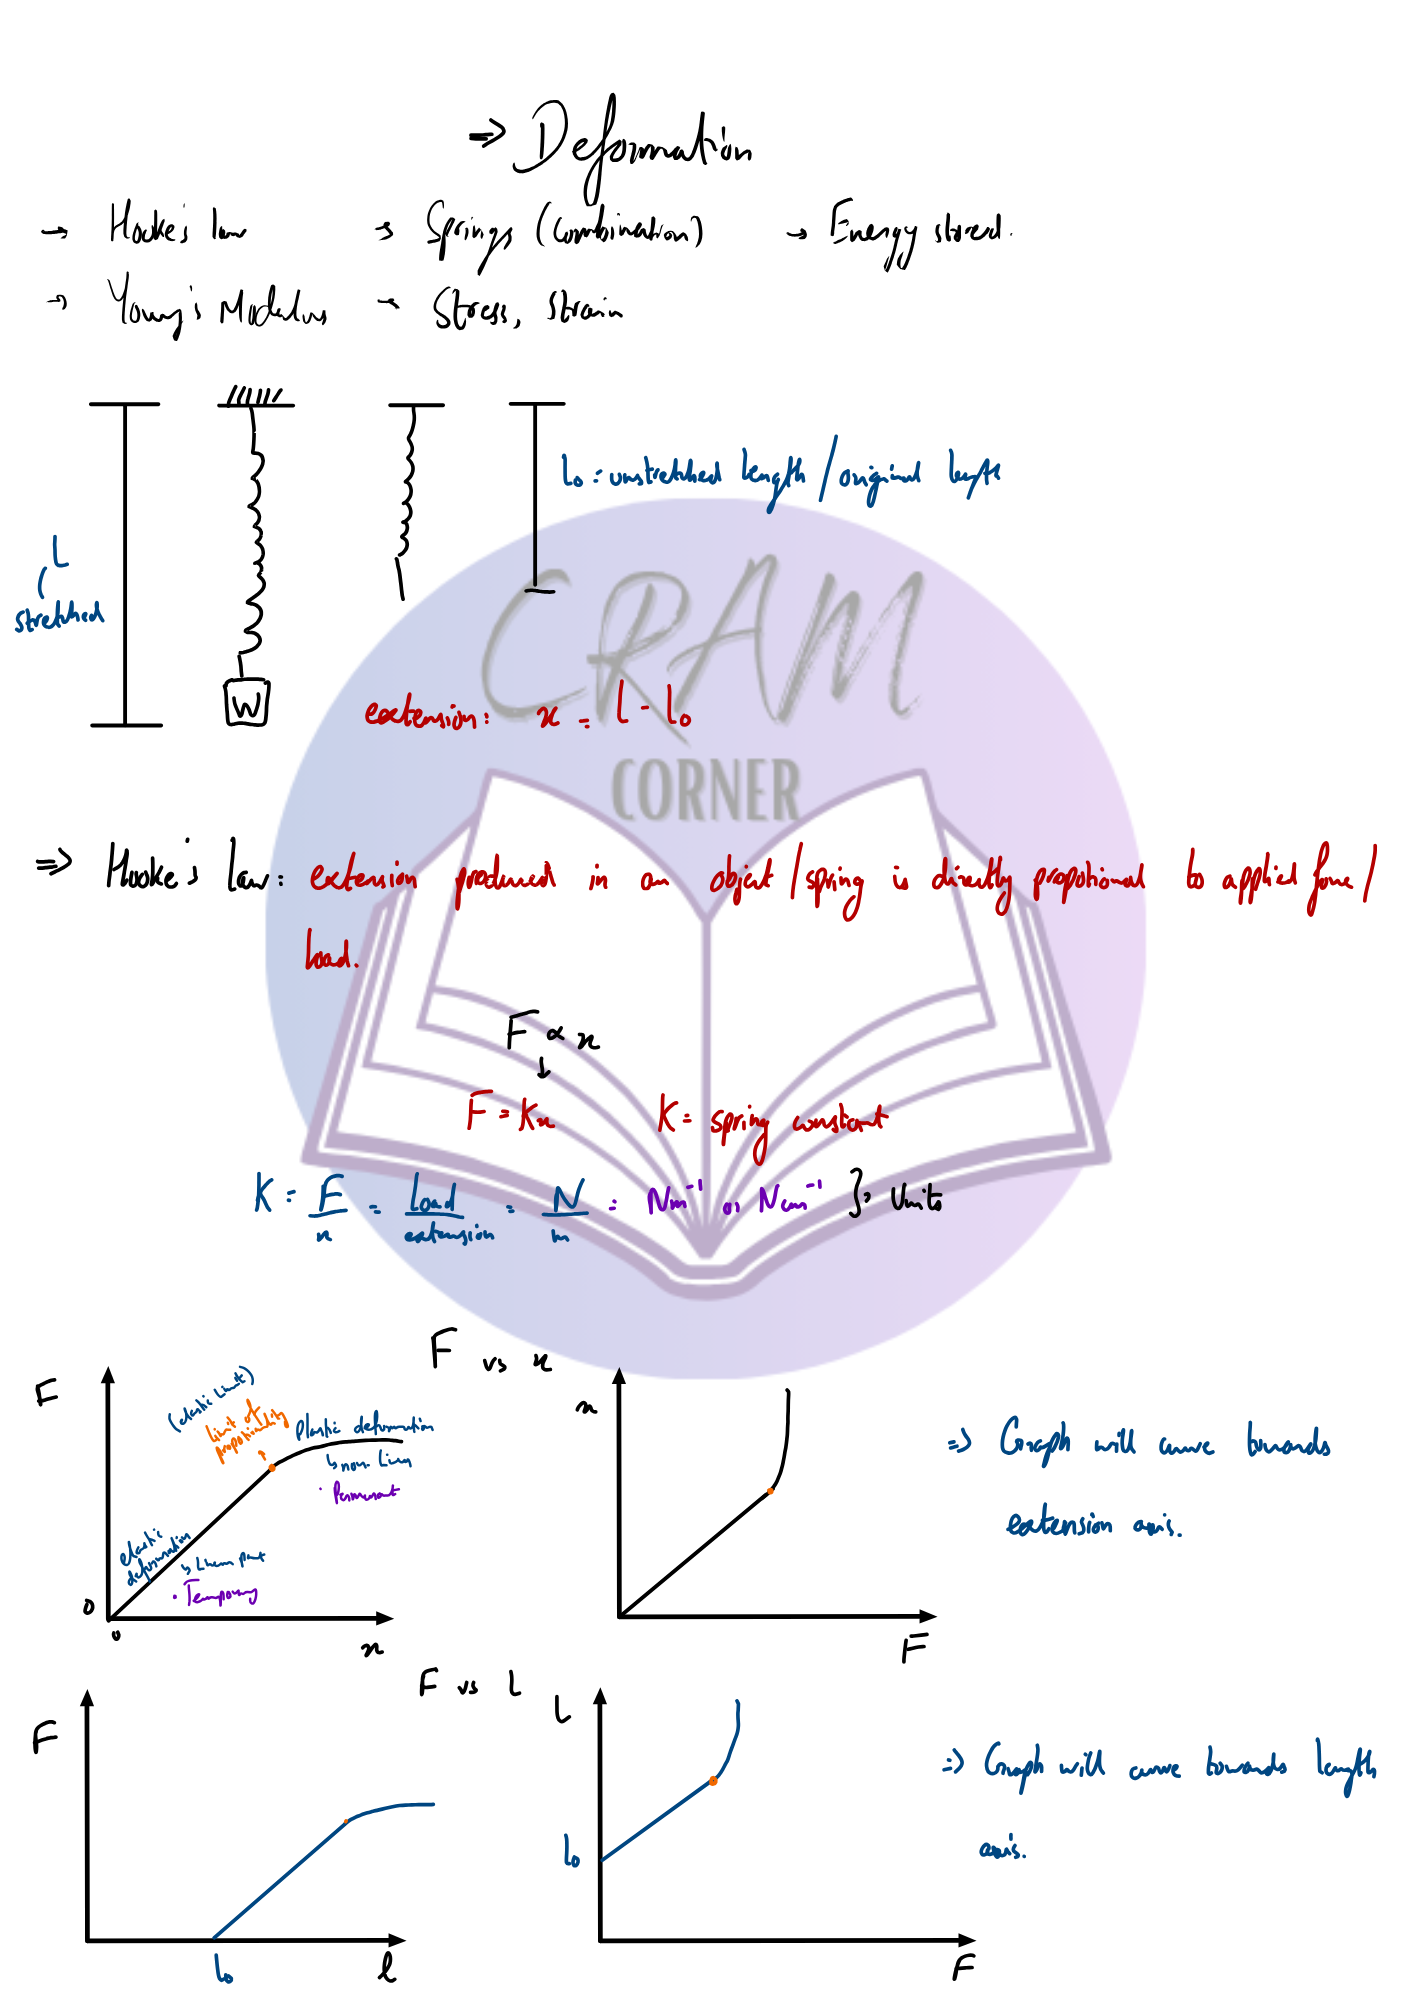 ⇒ Deformation
→ Hooke's law → Springs (Combination) → Energy stored.
→ Young's Modulus → Stress, strain
l₀ = unstretched length / original length
L
stretched
W
CRAM
CORNER
extension: x = l - l₀
⇒ Hooke's law: extension produced in an object / spring is directly propotional to applied force /
load.
F ∝ x
↓
F = Kx K = spring constant
K = F/x = Load/extension = N/m = Nm⁻¹ or Ncm⁻¹ }→ Units
F vs x
F
(elastic limit)
limit of
propotionality
Plastic deformation
↳ non-Linear
· Permanent
elastic
deformation
↳ Linear part
· Temporary
0
0
x
x
F
⇒ Graph will curve towards
extension axis.
F vs L
F
l₀
l
L
l₀
F
⇒ Graph will curve towards length
axis.